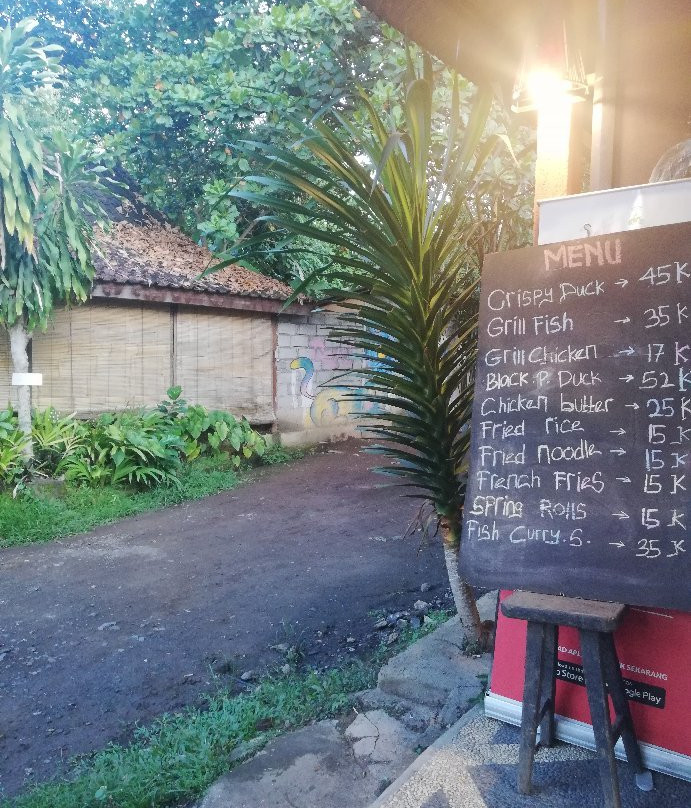 MENU
Crispy Duck → 45K
Grill Fish → 35K
Grill Chicken → 17K
Black.P. Duck → 52K
Chicken butter → 25K
Fried rice → 15K
Fried noodle → 15K
French Fries → 15K
Spring Rolls → 15K
Fish Curry.S. → 35K
SEKARANG
Store
Google Play